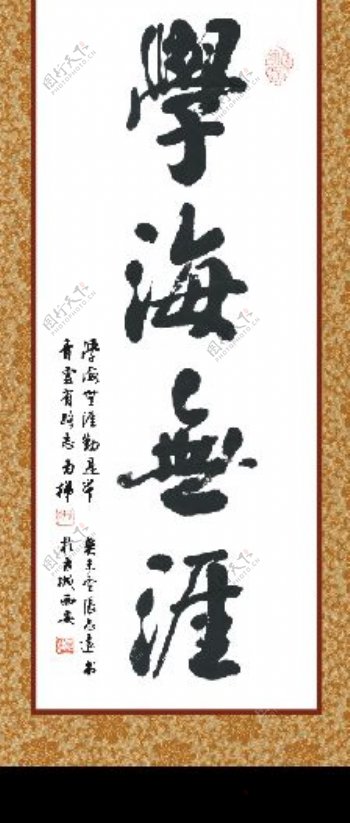 學海無涯
學海無涯勤是岸
青雲有路志為梯
癸未
書
於古城西安
图行天下
PHOTOPHOTO.CN